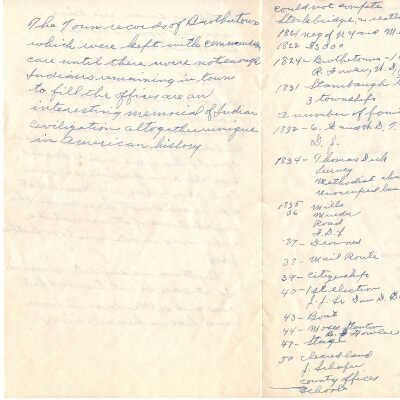 The Town records of Brothertown
which were kept with commendable
care until there were not enough
Indians remaining in town
to fill the offices are an
interesting memorial of Indian
civilization altogether unique
in American history
could not compete
Stockbridge
1821 neg of N.Y. and M
1822 $3000
1824 - Brothertown
1831 Stambaugh
3 townships
a number of fami
1832 - 6.
D. J.
1834 - Thomas Dick
Methodist
1835 Mills
36 Murder
Road
37 - Drowned
38 - Mail Route
39 - Citizenship
40 - 1st election
43 - Boat
44 - Moses Stanton
Fowler
49 - Stage
50 cleared land
county offices
Schools